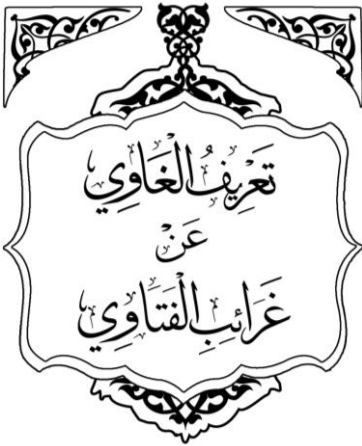 تَعْرِيفُ الْغَاوِي
عَنْ
غَرَائِبِ الْفَتَاوِي